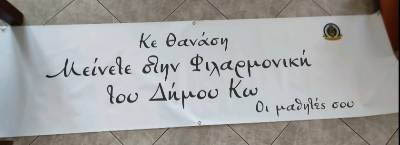 Κε Θανάση
Μείνετε στην Φιλαρμονική
του Δήμου Κω
Οι μαθητές σου